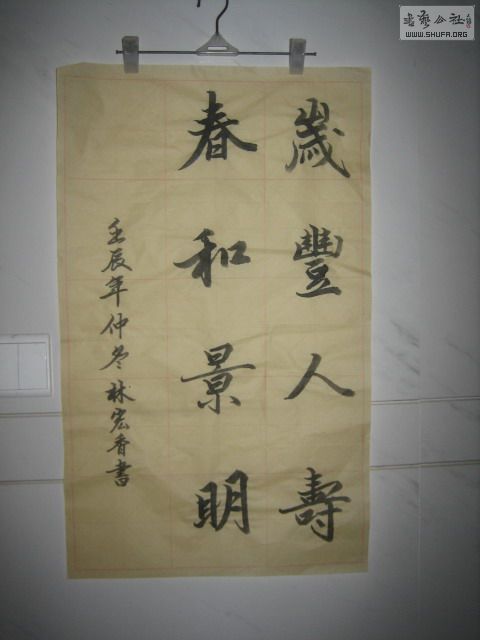 歲豐人壽
春和景明
壬辰年仲冬林宏香書
書藝公社
WWW.SHUFA.ORG